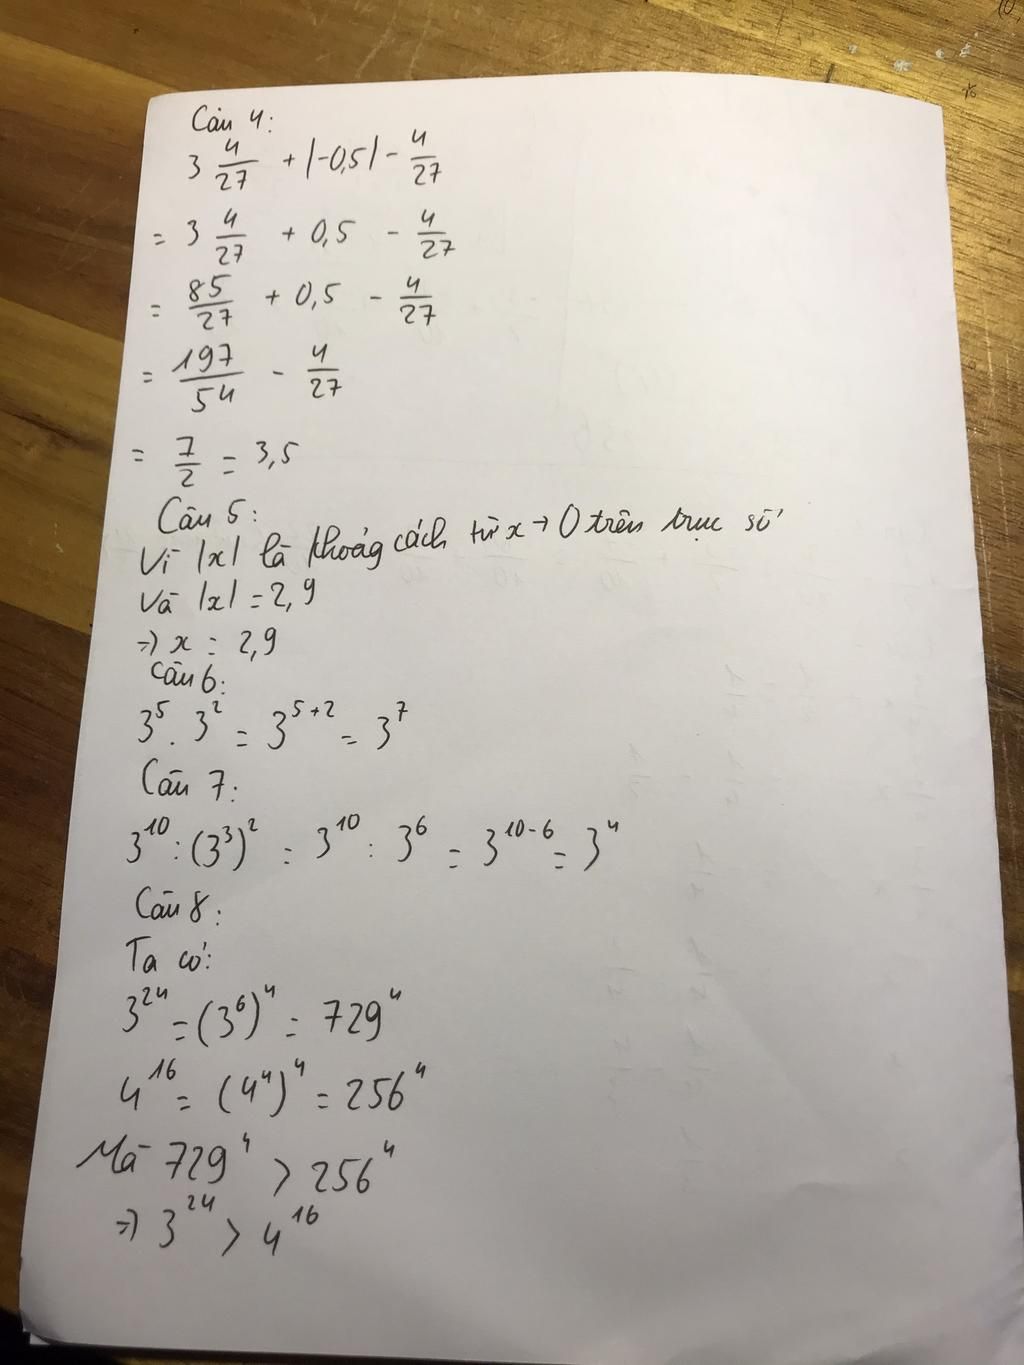 Câu 4:
3 4/27 + |-0,5| - 4/27
= 3 4/27 + 0,5 - 4/27
= 85/27 + 0,5 - 4/27
= 197/54 - 4/27
= 7/2 = 3,5
Câu 5:
Vì |x| là khoảg cách từ x → 0 trên trục số
Và |x| = 2,9
⇒ x = 2,9
Câu 6:
3⁵ . 3² = 3⁵⁺² = 3⁷
Câu 7:
3¹⁰ : (3³)² = 3¹⁰ : 3⁶ = 3¹⁰⁻⁶ = 3⁴
Câu 8:
Ta có:
3²⁴ = (3⁶)⁴ = 729⁴
4¹⁶ = (4⁴)⁴ = 256⁴
Mà 729⁴ > 256⁴
⇒ 3²⁴ > 4¹⁶